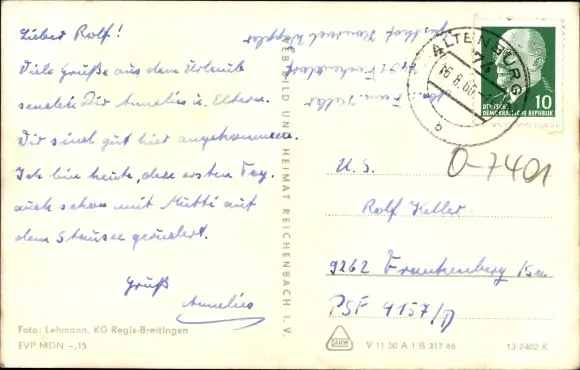 Lieber Rolf!
Viele Grüße aus dem Urlaub
sendet Dir Annelies u. Eltern.
Wir sind gut hier angekommen.
Ich bin heute, dem ersten Tag.
auch schon mit Mutti auf
dem Stausee gerudert.
Gruß
Annelies
Foto: Lehmann, KG Regis-Breitingen
EVP MDN -,15
VEB BILD UND HEIMAT REICHENBACH I. V.
Fam. Keller
ALTENBURG
74
16.8.66
10
DEUTSCHE
DEMOKRATISCHE REPUBLIK
O-7401
U.S.
Rolf Keller
9262 Frankenberg
PSF 4157/D
V 11 50 A 1 B 317 66
13 2402 K